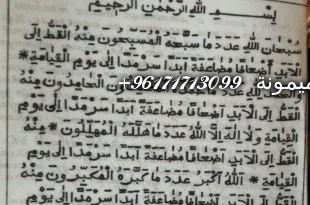 بِسْمِ اللهِ الرَّحْمٰنِ الرَّحِيْمِ
سُبْحَانَ اللهِ عَدَدَ مَا سَبَّحَهُ الْمُسَبِّحُونَ مِنْهُ الْقَطُّ اِلَى
الْاَبَدِ اَضْعَافًا مُضَاعَفَةً اَبَدًا سَرْمَدًا اِلَى يَوْمِ الْقِيَامَةِ *
عَدَدَ الْحَامِدُونَ مِنْهُ
ميمونة +96171713099
الْقَطُّ اِلَى الْاَبَدِ اَضْعَافًا مُضَاعَفَةً اَبَدًا سَرْمَدًا اِلَى يَوْمِ
الْقِيَامَةِ وَلَا اِلٰهَ اِلَّا اللهُ عَدَدَ مَا هَلَّلَهُ الْمُهَلِّلُونَ * مِنْهُ
الْقَطُّ اِلَى الْاَبَدِ اَضْعَافًا مُضَاعَفَةً اَبَدًا سَرْمَدًا اِلَى يَوْمِ
الْقِيَامَةِ * اَللهُ اَكْبَرُ عَدَدَ مَا كَبَّرَهُ الْمُكَبِّرُونَ مِنْهُ
الْقَطُّ اِلَى الْاَبَدِ اَضْعَافًا مُضَاعَفَةً اَبَدًا سَرْمَدًا اِلَى يَوْمِ